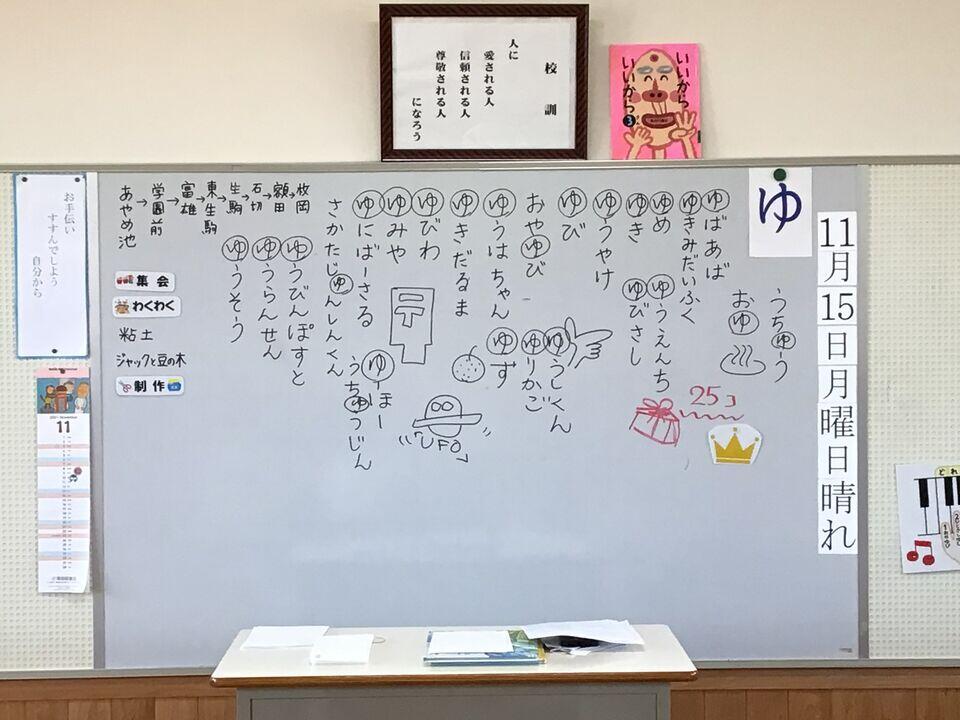 校訓
人に
愛される人
信頼される人
尊敬される人
になろう
いいから
いいから
3
ゆ
11月15日月曜日晴れ
うちゅーう
おゆ
ゆばあば
ゆきみだいふく
ゆめ
ゆうえんち
ゆき
ゆびさし
ゆうやけ
ゆび
ゆうしくん
おやゆび
ゆりかご
ゆうはちゃん
ゆず
ゆきだるま
ゆびわ
ゆみや
ゆーほー
ゆにばーさる
うちゅうじん
さかたじゅんしんくん
ゆうびんぽすと
ゆうらんせん
ゆうそう
〒
「UFO」
25コ
枚岡
額田→
石切→
生駒→
東生駒→
富雄→
学園前→
あやめ池
集会
わくわく
粘土
ジャックと豆の木
制作
お手伝い
すすんでしよう
自分から
11
どれ